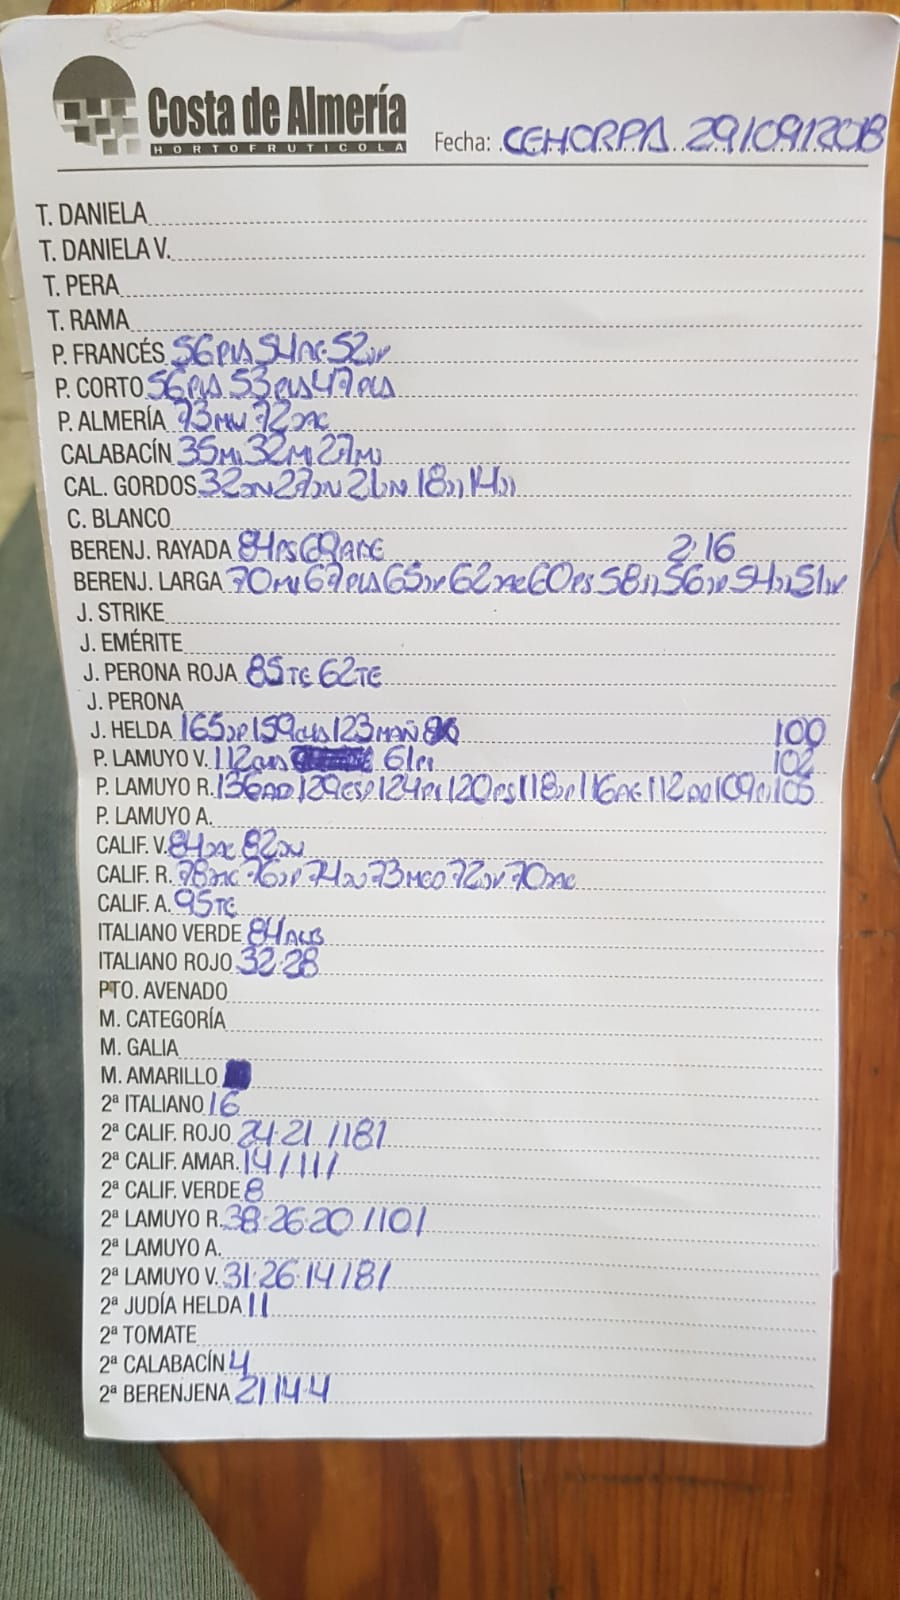 Costa de Almería
HORTOFRUTICOLA
Fecha: CEHORPA 29/09/2018
T. DANIELA
T. DANIELA V.
T. PERA
T. RAMA
P. FRANCÉS 56 PLA 54 AC 52
P. CORTO 56 PLA 53 PLA 47 PLA
P. ALMERÍA 73 72
CALABACÍN 35 32 27
CAL. GORDOS 32 27 21 18 )) 14 ))
C. BLANCO
BERENJ. RAYADA 84 PS 69 2 16
BERENJ. LARGA 70 67 PLA 65 62 60 PS 58 )) 56 54 )) 51
J. STRIKE
J. EMÉRITE
J. PERONA ROJA 85 TE 62 TE
J. PERONA
J. HELDA 165 159 123 MAÑ 100
P. LAMUYO V. 112 61 102
P. LAMUYO R. 136 AD 129 ESP 124 120 PS 118 116 112 109 105
P. LAMUYO A.
CALIF. V. 84 82
CALIF. R. 78 76 74 73 MEO 72 70
CALIF. A. 95 TE
ITALIANO VERDE 84
ITALIANO ROJO 32·28
PTO. AVENADO
M. CATEGORÍA
M. GALIA
M. AMARILLO
2ª ITALIANO 16
2ª CALIF. ROJO 24·21 /18/
2ª CALIF. AMAR. 14 /11/
2ª CALIF. VERDE 8
2ª LAMUYO R. 38·26·20 /10/
2ª LAMUYO A.
2ª LAMUYO V. 31·26·14 /8/
2ª JUDÍA HELDA 11
2ª TOMATE
2ª CALABACÍN 4
2ª BERENJENA 21 14·4